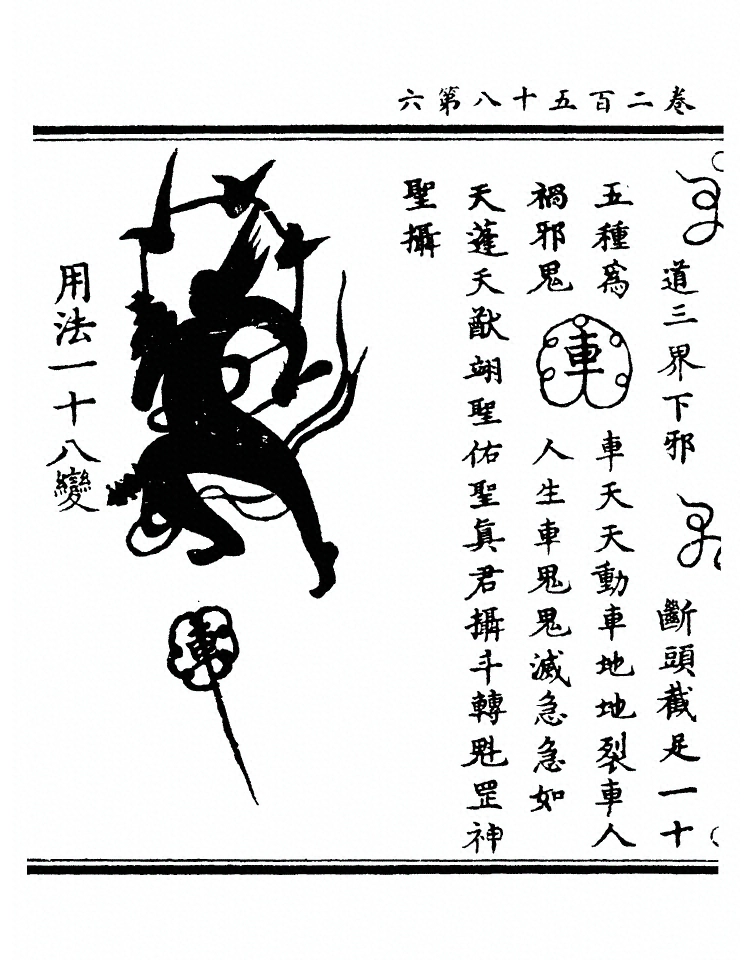 卷二百五十八第六
道三界下邪 斷頭截足一十
五種爲
禍邪鬼
車
車天天動車地地裂車人
人生車鬼鬼滅急急如
天蓬天猷翊聖佑聖眞君攝斗轉魁罡神
聖攝
用法一十八變
車